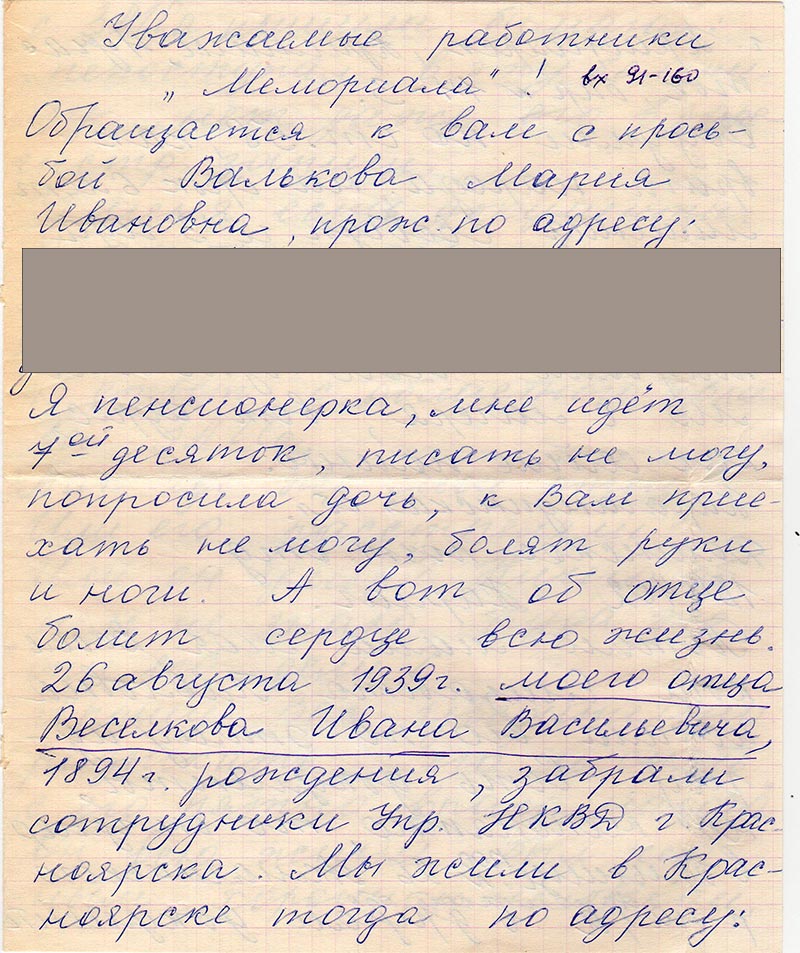 Уважаемые работники
„Мемориала"! вх 91-160
Обращается к вам с прось-
бой Валькова Мария
Ивановна, прож. по адресу:
Я пенсионерка, мне идёт
7ой десяток, писать не могу,
попросила дочь, к Вам прие-
хать не могу, болят руки
и ноги. А вот об отце
болит сердце всю жизнь.
26 августа 1939г. моего отца
Веселкова Ивана Васильевича,
1894г. рождения, забрали
сотрудники Упр. НКВД г. Крас-
ноярска. Мы жили в Крас-
ноярске тогда по адресу: